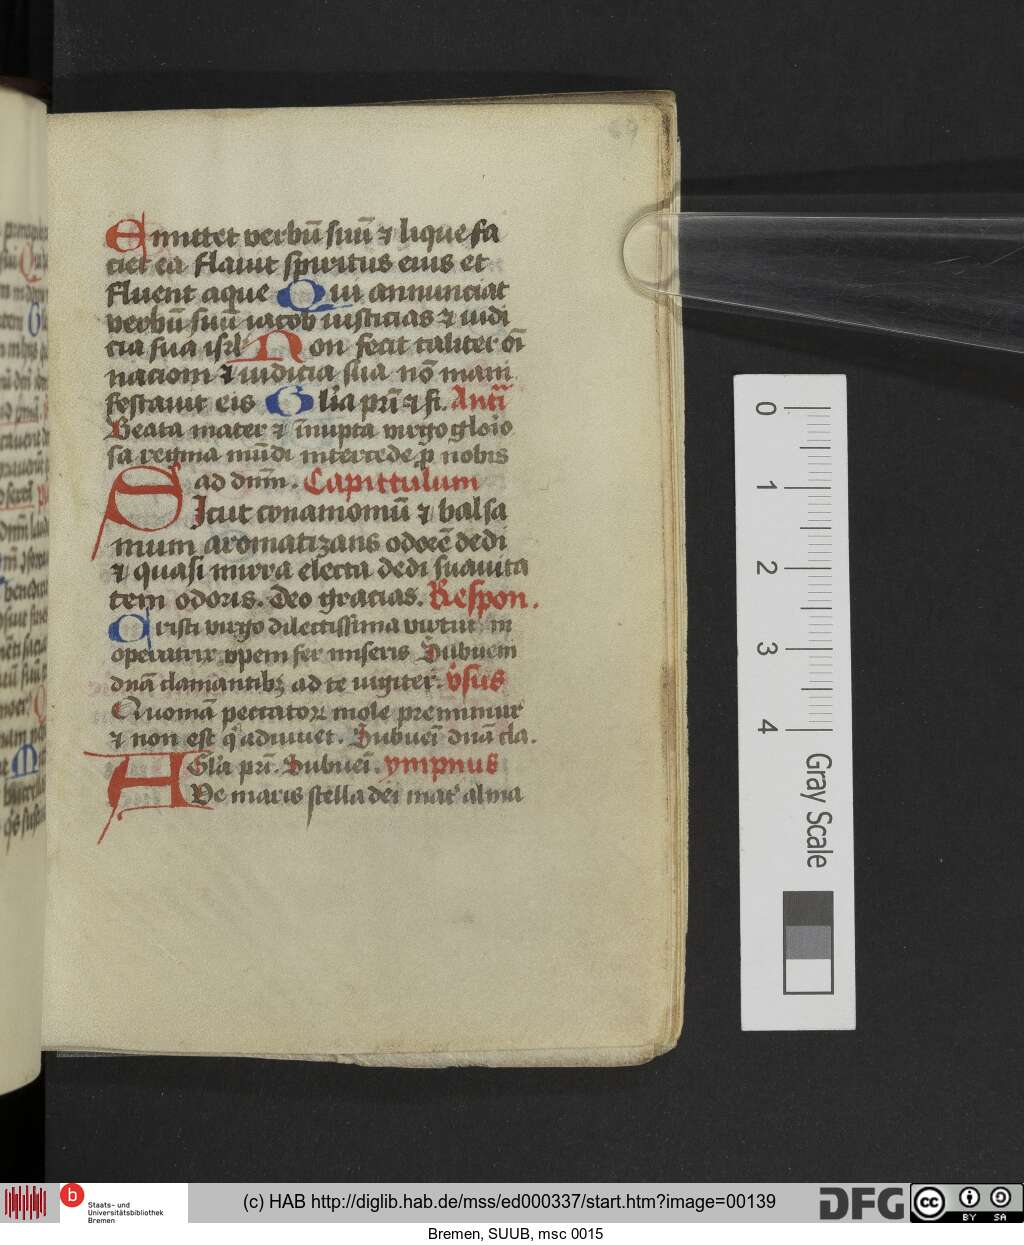 69
Emittet verbū suū ⁊ liquefa
ciet ea flauit spiritus eius et
fluent aque Qui annunciat
verbū suū iacob iusticias ⁊ iudi
cia sua isrl Non fecit taliter oī
nacioni ⁊ iudicia sua nō mani
festauit eis Glia pri ⁊ fi. Antī
Beata mater ⁊ īnupta virgo glorio
sa regina mūdi intercede p̄ nobis
ad dnm̄. Capittulum
Sicut cynamomū ⁊ balsa
mum aromatizans odorē dedi
⁊ quasi mirra electa dedi suauita
tem odoris. Deo gracias. Respon.
Cristi virgo dilectissima virtutū
operatrix opem fer miseris Subueni
dnā clamantibꝫ ad te iugiter. v̊sus
Quomā peccatoꝝ mole premimur
⁊ non est q̇ adiuuet. Subueī dnā cla.
Glā pri. Subueī. ympnus
Ave maris stella dei mat' alma
0
1
2
3
4
Gray Scale
b Staats- und
Universitätsbibliothek
Bremen
(c) HAB http://diglib.hab.de/mss/ed000337/start.htm?image=00139
DFG
cc BY SA
Bremen, SUUB, msc 0015